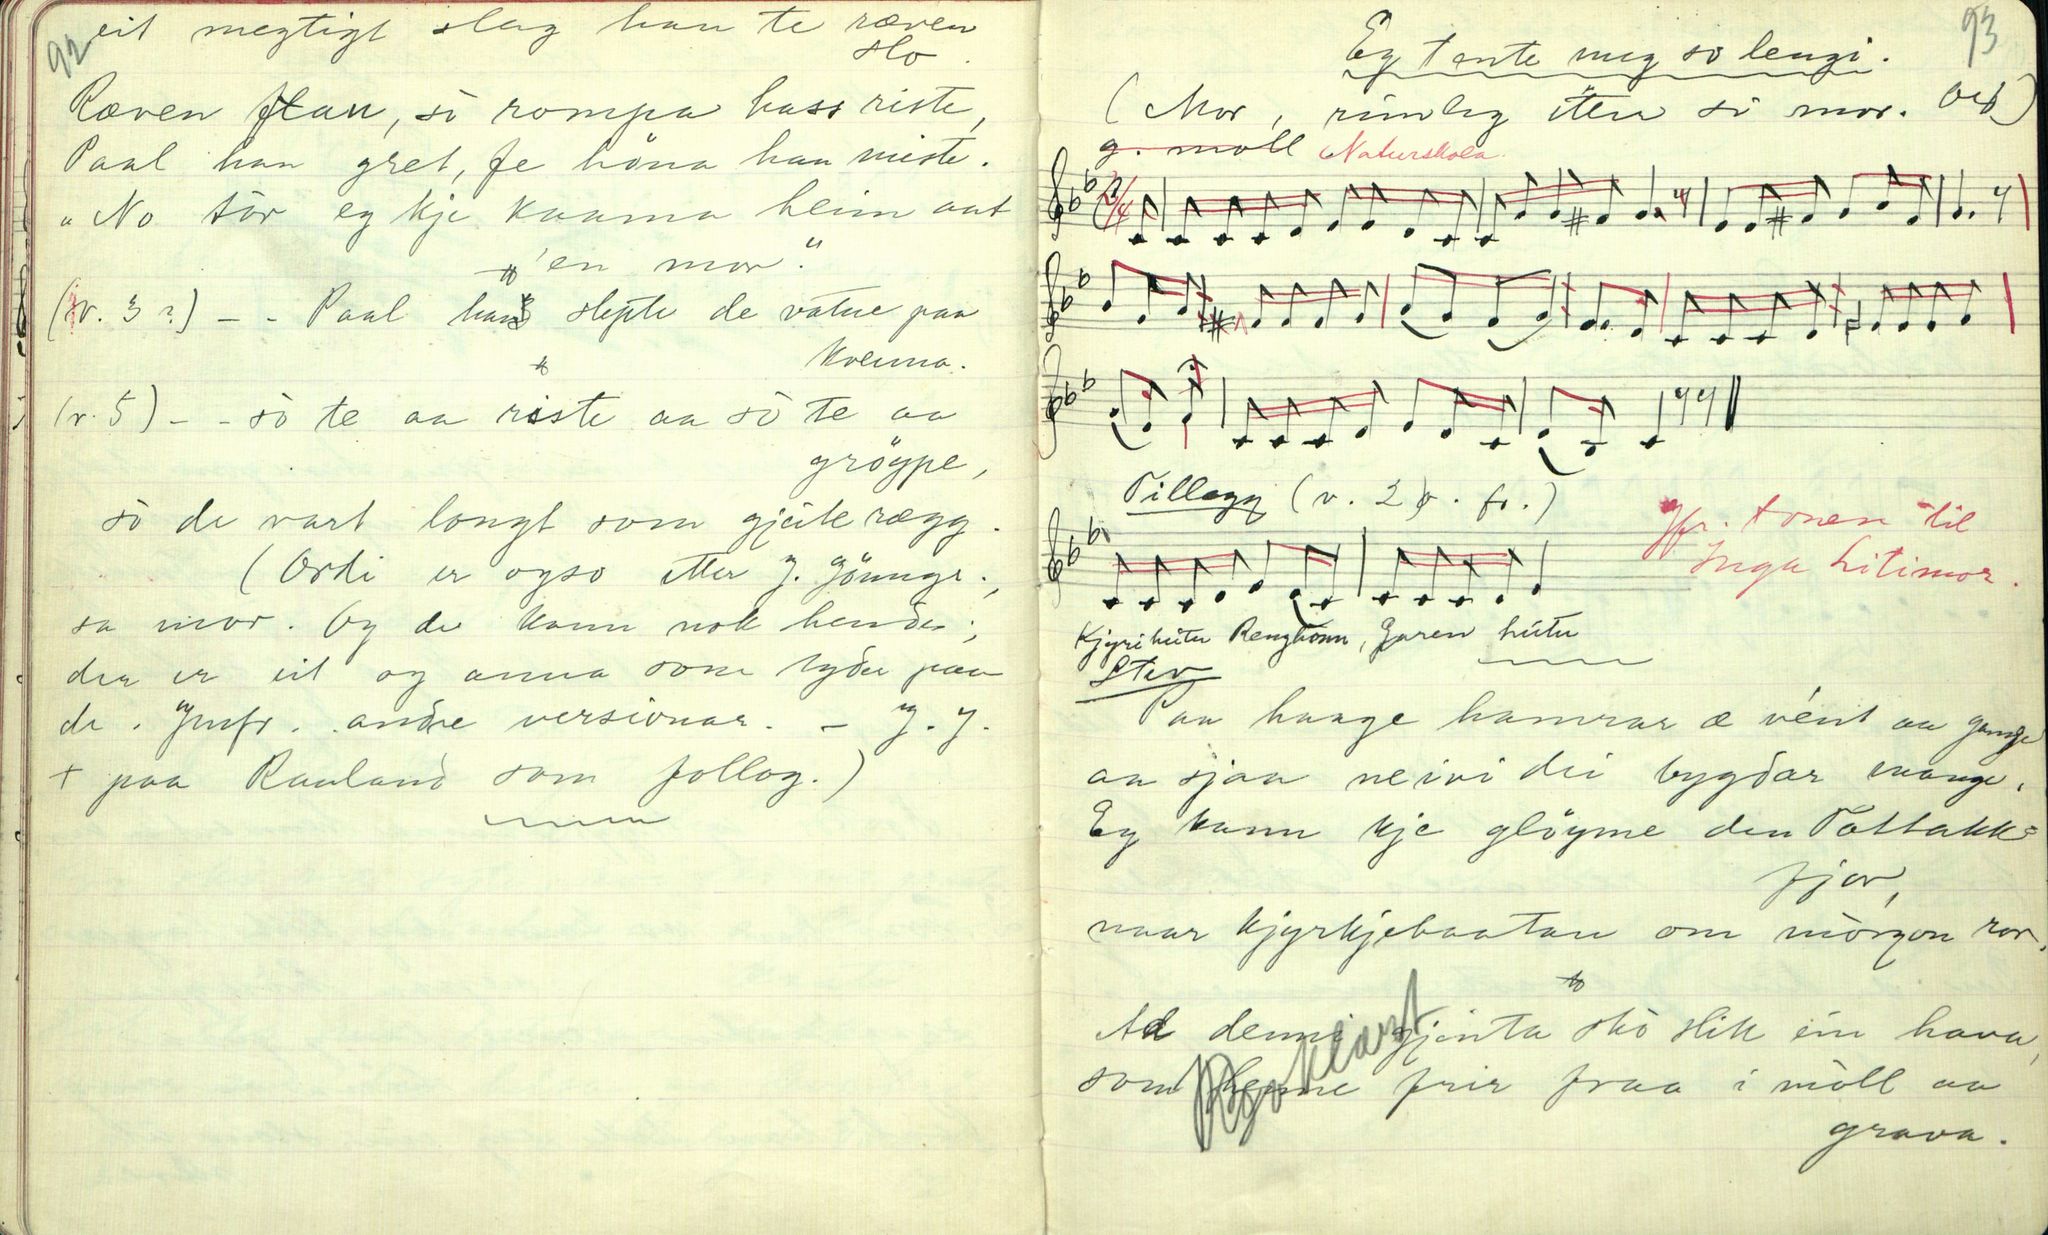 92
eit megtigt slag han te ræven
slo.
Ræven flau, sò rompa hass riste,
Paal han gret, fe höna han miste.
"No tör eg kje kaama heim aat
'en mor."
(v. 3 ?) - - Paal han slepte de vatne paa
kvenna.
(v. 5) - - sò te aa riste aa sò te aa
gröype,
sò de vart longt som gjeiterægg.
(Ordi er ogso etter J. Gönngr.,
sa mor. Og de kann nok hende;
der er eit og anna som tyder paa
de. Jmfr. andre versionar. - J. J.
+ paa Rauland som follog.)
93
Eg tente meg so lengi.
(Mor, rimleg etter si mor. Ord)
g. moll Naturskola.
2/4
Tillegg (v. 2 o. fr.)
Jfr. tonen til
Inga Litimor.
Kjyri hutu Renghonn, Garen hutu
Stev
Paa haage hamrar æ vént aa gange
aa sjaa ne ivi dei bygdar mange.
Eg kann kje glöyme den Tottakk-
fjor,
naar kjyrkjebaatan om mòrgon ror.
Ad denni gjenta skò slik ein hava,
som henne frir fraa i mòll aa
grava.